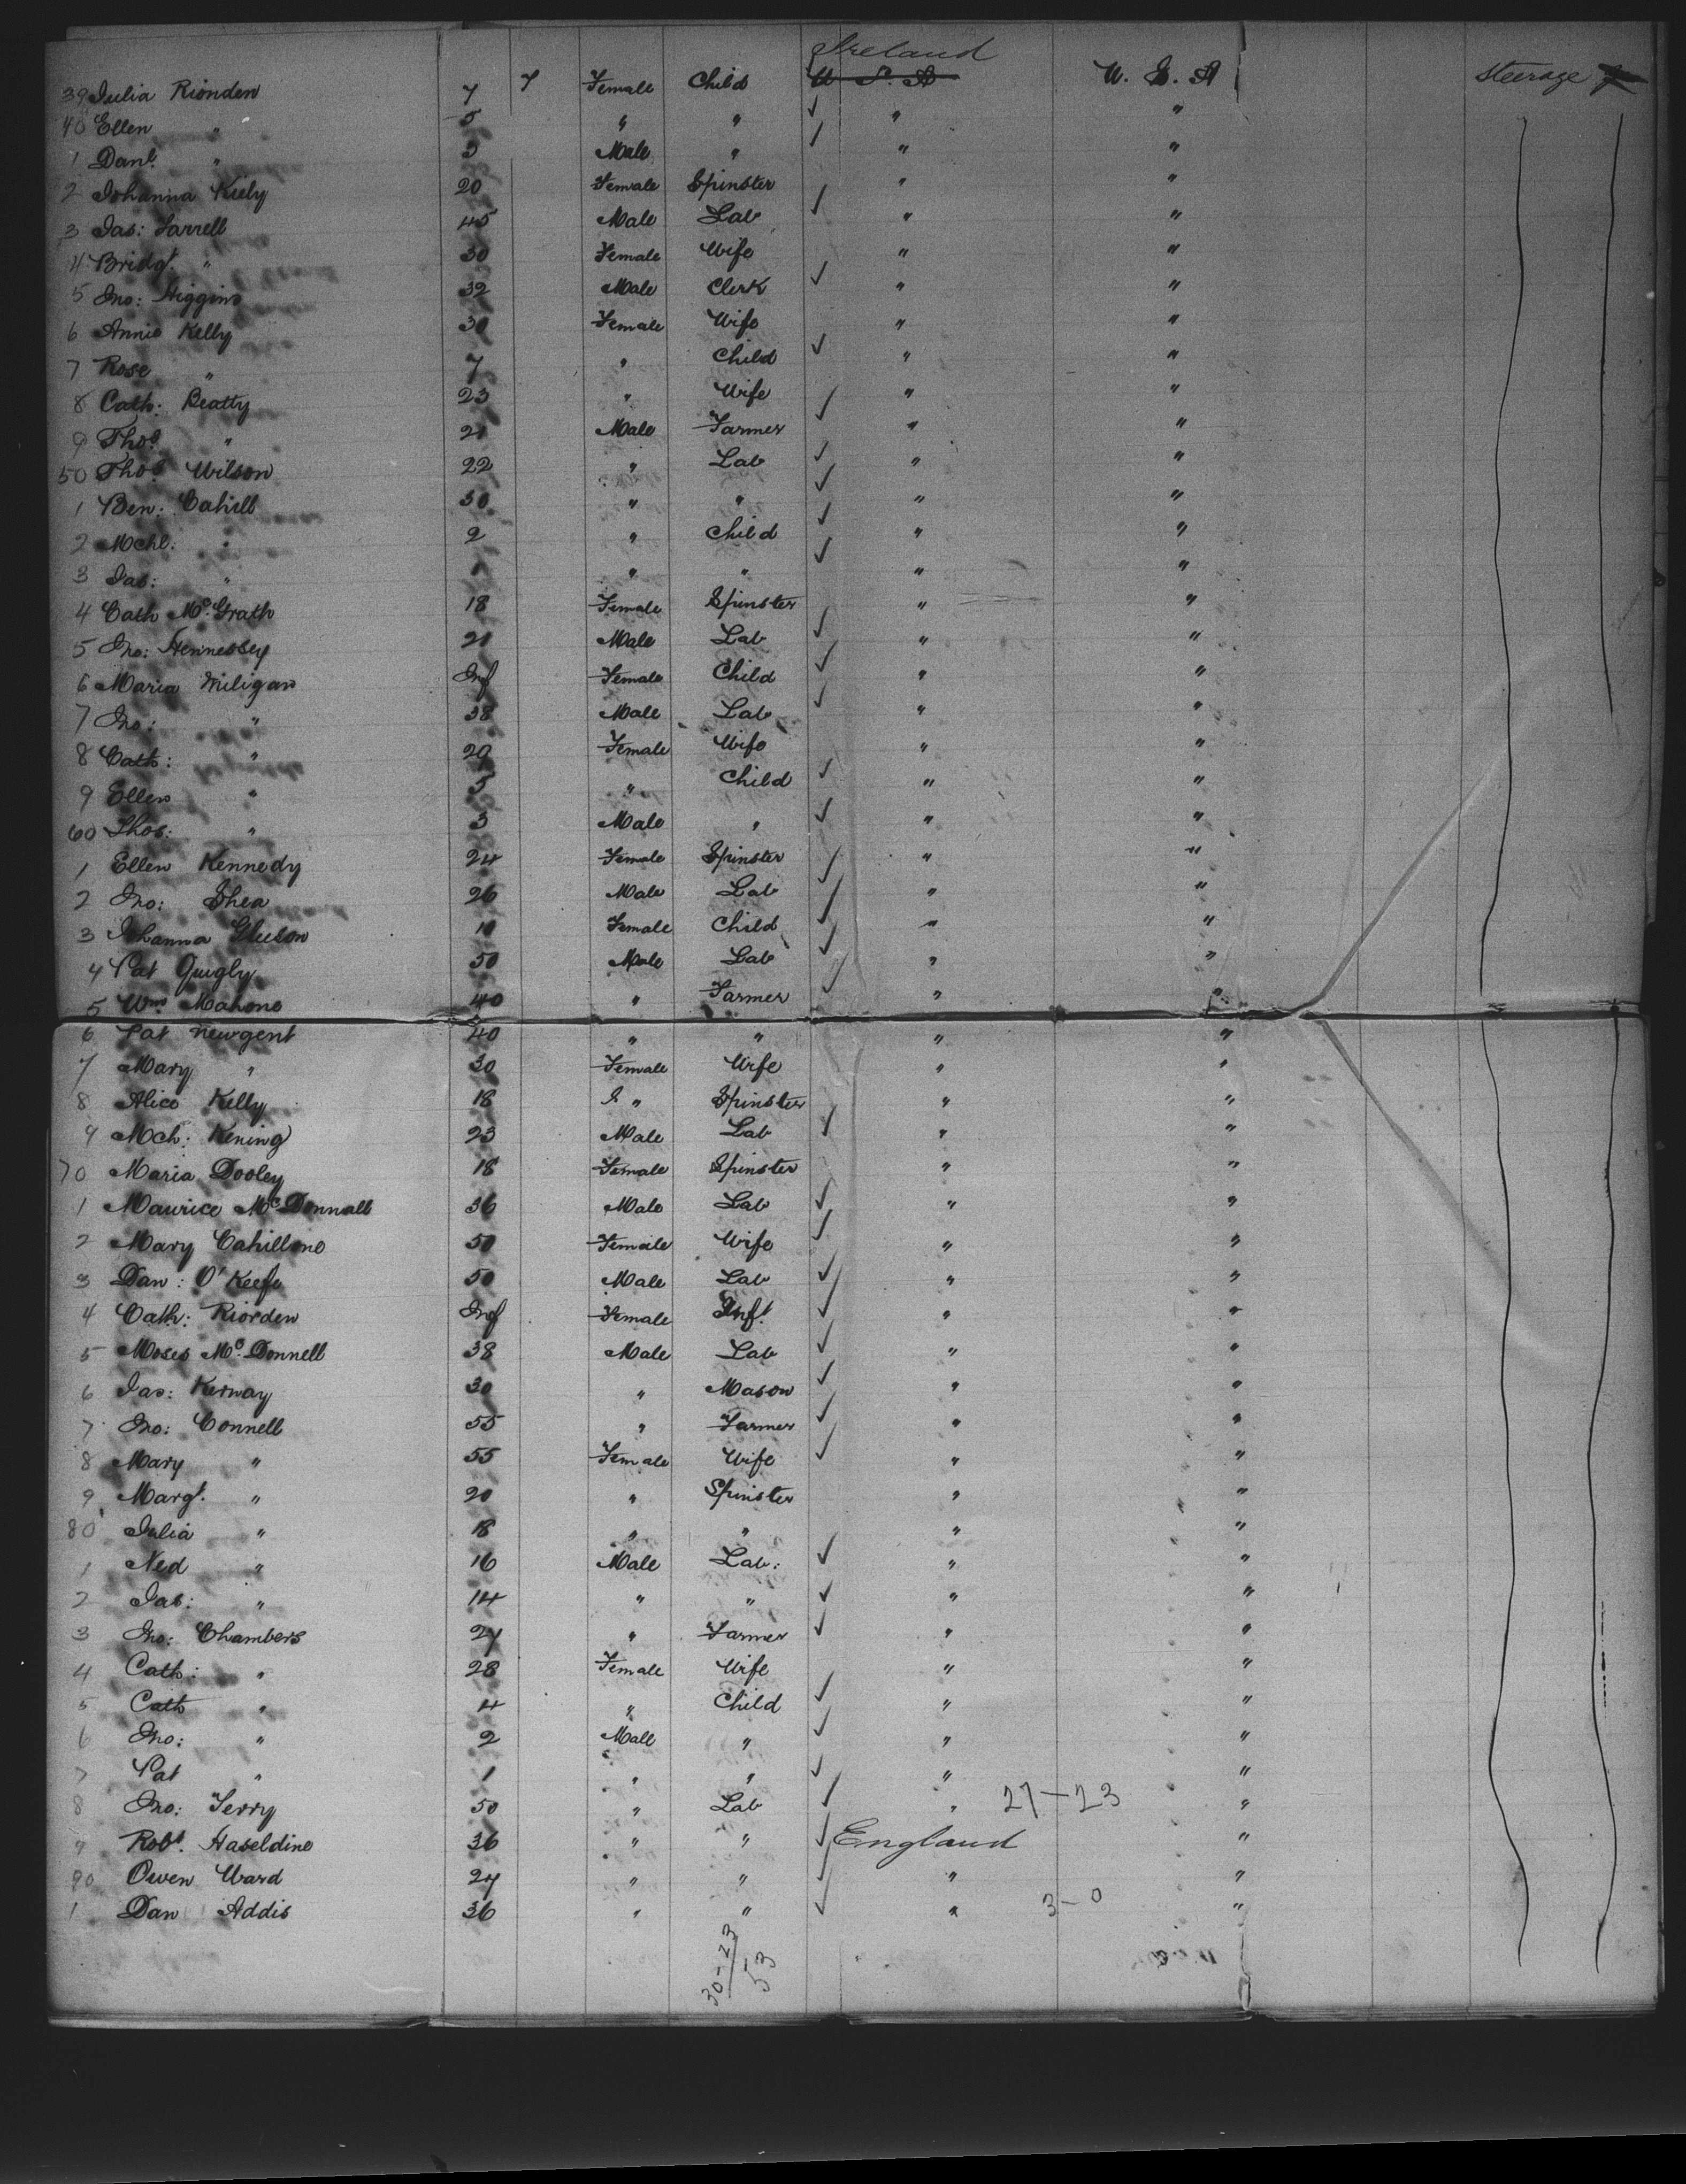 Ireland
39 Julia Riorden 7 7 Female Child U. S. A U. S. A Steerage
40 Ellen " 5 " " " "
1 Danl. " 3 Male " " "
2 Johanna Kiely 20 Female Spinster " "
3 Jas: Farrell 45 Male Lab " "
4 Bridgt. " 30 Female Wife " "
5 Jno: Higgins 32 Male Clerk " "
6 Annie Kelly 30 Female Wife " "
7 Rose " 7 " Child " "
8 Cath: Beatty 23 " Wife " "
9 Thos. " 21 Male Farmer " "
50 Thos. Wilson 22 " Lab " "
1 Ben: Cahill 30 " " " "
2 Mchl: " 2 " Child " "
3 Jas: " 1 " " " "
4 Cath McGrath 18 Female Spinster " "
5 Jno: Hennessey 21 Male Lab " "
6 Maria Miligan Inf Female Child " "
7 Jno: " 38 Male Lab " "
8 Cath: " 29 Female Wife " "
9 Ellen " 5 " Child " "
60 Thos: " 3 Male " " "
1 Ellen Kennedy 24 Female Spinster " "
2 Jno: Shea 26 Male Lab " "
3 Johanna Gleeson 10 Female Child " "
4 Pat Quigly 50 Male Lab " "
5 Wm Mahone 40 " Farmer " "
6 Pat Newgent 40 " " " "
7 Mary " 30 Female Wife " "
8 Alice Kelly 18 " Spinster " "
9 Mch: Kening 23 Male Lab " "
70 Maria Dooley 18 Female Spinster " "
1 Maurice McDonnall 36 Male Lab " "
2 Mary Cahillone 50 Female Wife " "
3 Dan: O'Keefe 50 Male Lab " "
4 Cath: Riorden Inf Female Inft. " "
5 Moses McDonnell 38 Male Lab " "
6 Jas: Kerway 30 " Mason " "
7 Jno: Connell 55 " Farmer " "
8 Mary " 55 Female Wife " "
9 Margt. " 20 " Spinster " "
80 Julia " 18 " " " "
1 Ned " 16 Male Lab: " "
2 Jas: " 14 " " " "
3 Jno: Chambers 27 " Farmer " "
4 Cath: " 28 Female Wife " "
5 Cath " 4 " Child " "
6 Jno: " 2 Male " " "
7 Pat " 1 " " " "
8 Jno: Terry 50 " Lab " 27-23 "
9 Robt. Haseldine 36 " " England "
90 Owen Ward 24 " " " "
1 Dan Addis 36 " " " 3-0 "
30-23
53